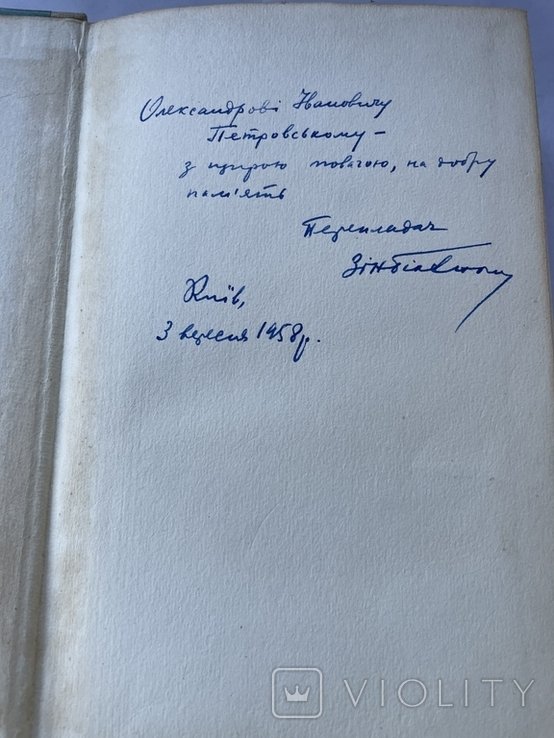 Олександрові Івановичу
Петровському –
з щирою повагою, на добру
пам'ять
Перекладач
Київ,
3 вересня 1958 р.
VIOLITY